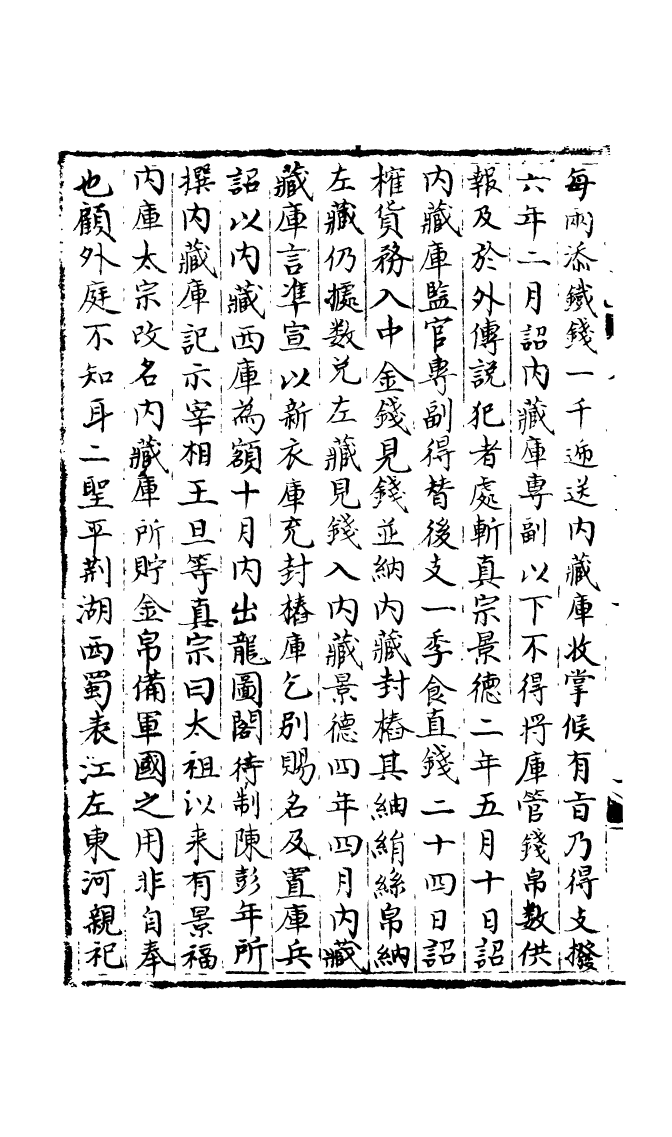 每兩添鐵錢一千逓送内藏庫收掌候有㫖乃得支撥
六年二月詔内藏庫専副以下不得將庫管錢帛数供
報及於外傳説犯者處斬真宗景德二年五月十日詔
内藏庫監官専副得替後支一季食直錢二十四日詔
榷貨務入中金錢見錢並納内藏封樁其紬絹絲帛納
左藏仍據数兑左藏見錢入内藏景德四年四月内藏
藏庫言准宣以新衣庫充封樁庫乞别賜名及置庫兵
詔以内藏西庫為額十月内出龍圖閣待制陳彭年所
撰内藏庫記示宰相王旦等真宗曰太祖以来有景福
内庫太宗改名内藏庫所貯金帛備軍國之用非自奉
也顧外庭不知耳二聖平荆湖西蜀表江左東河親祀